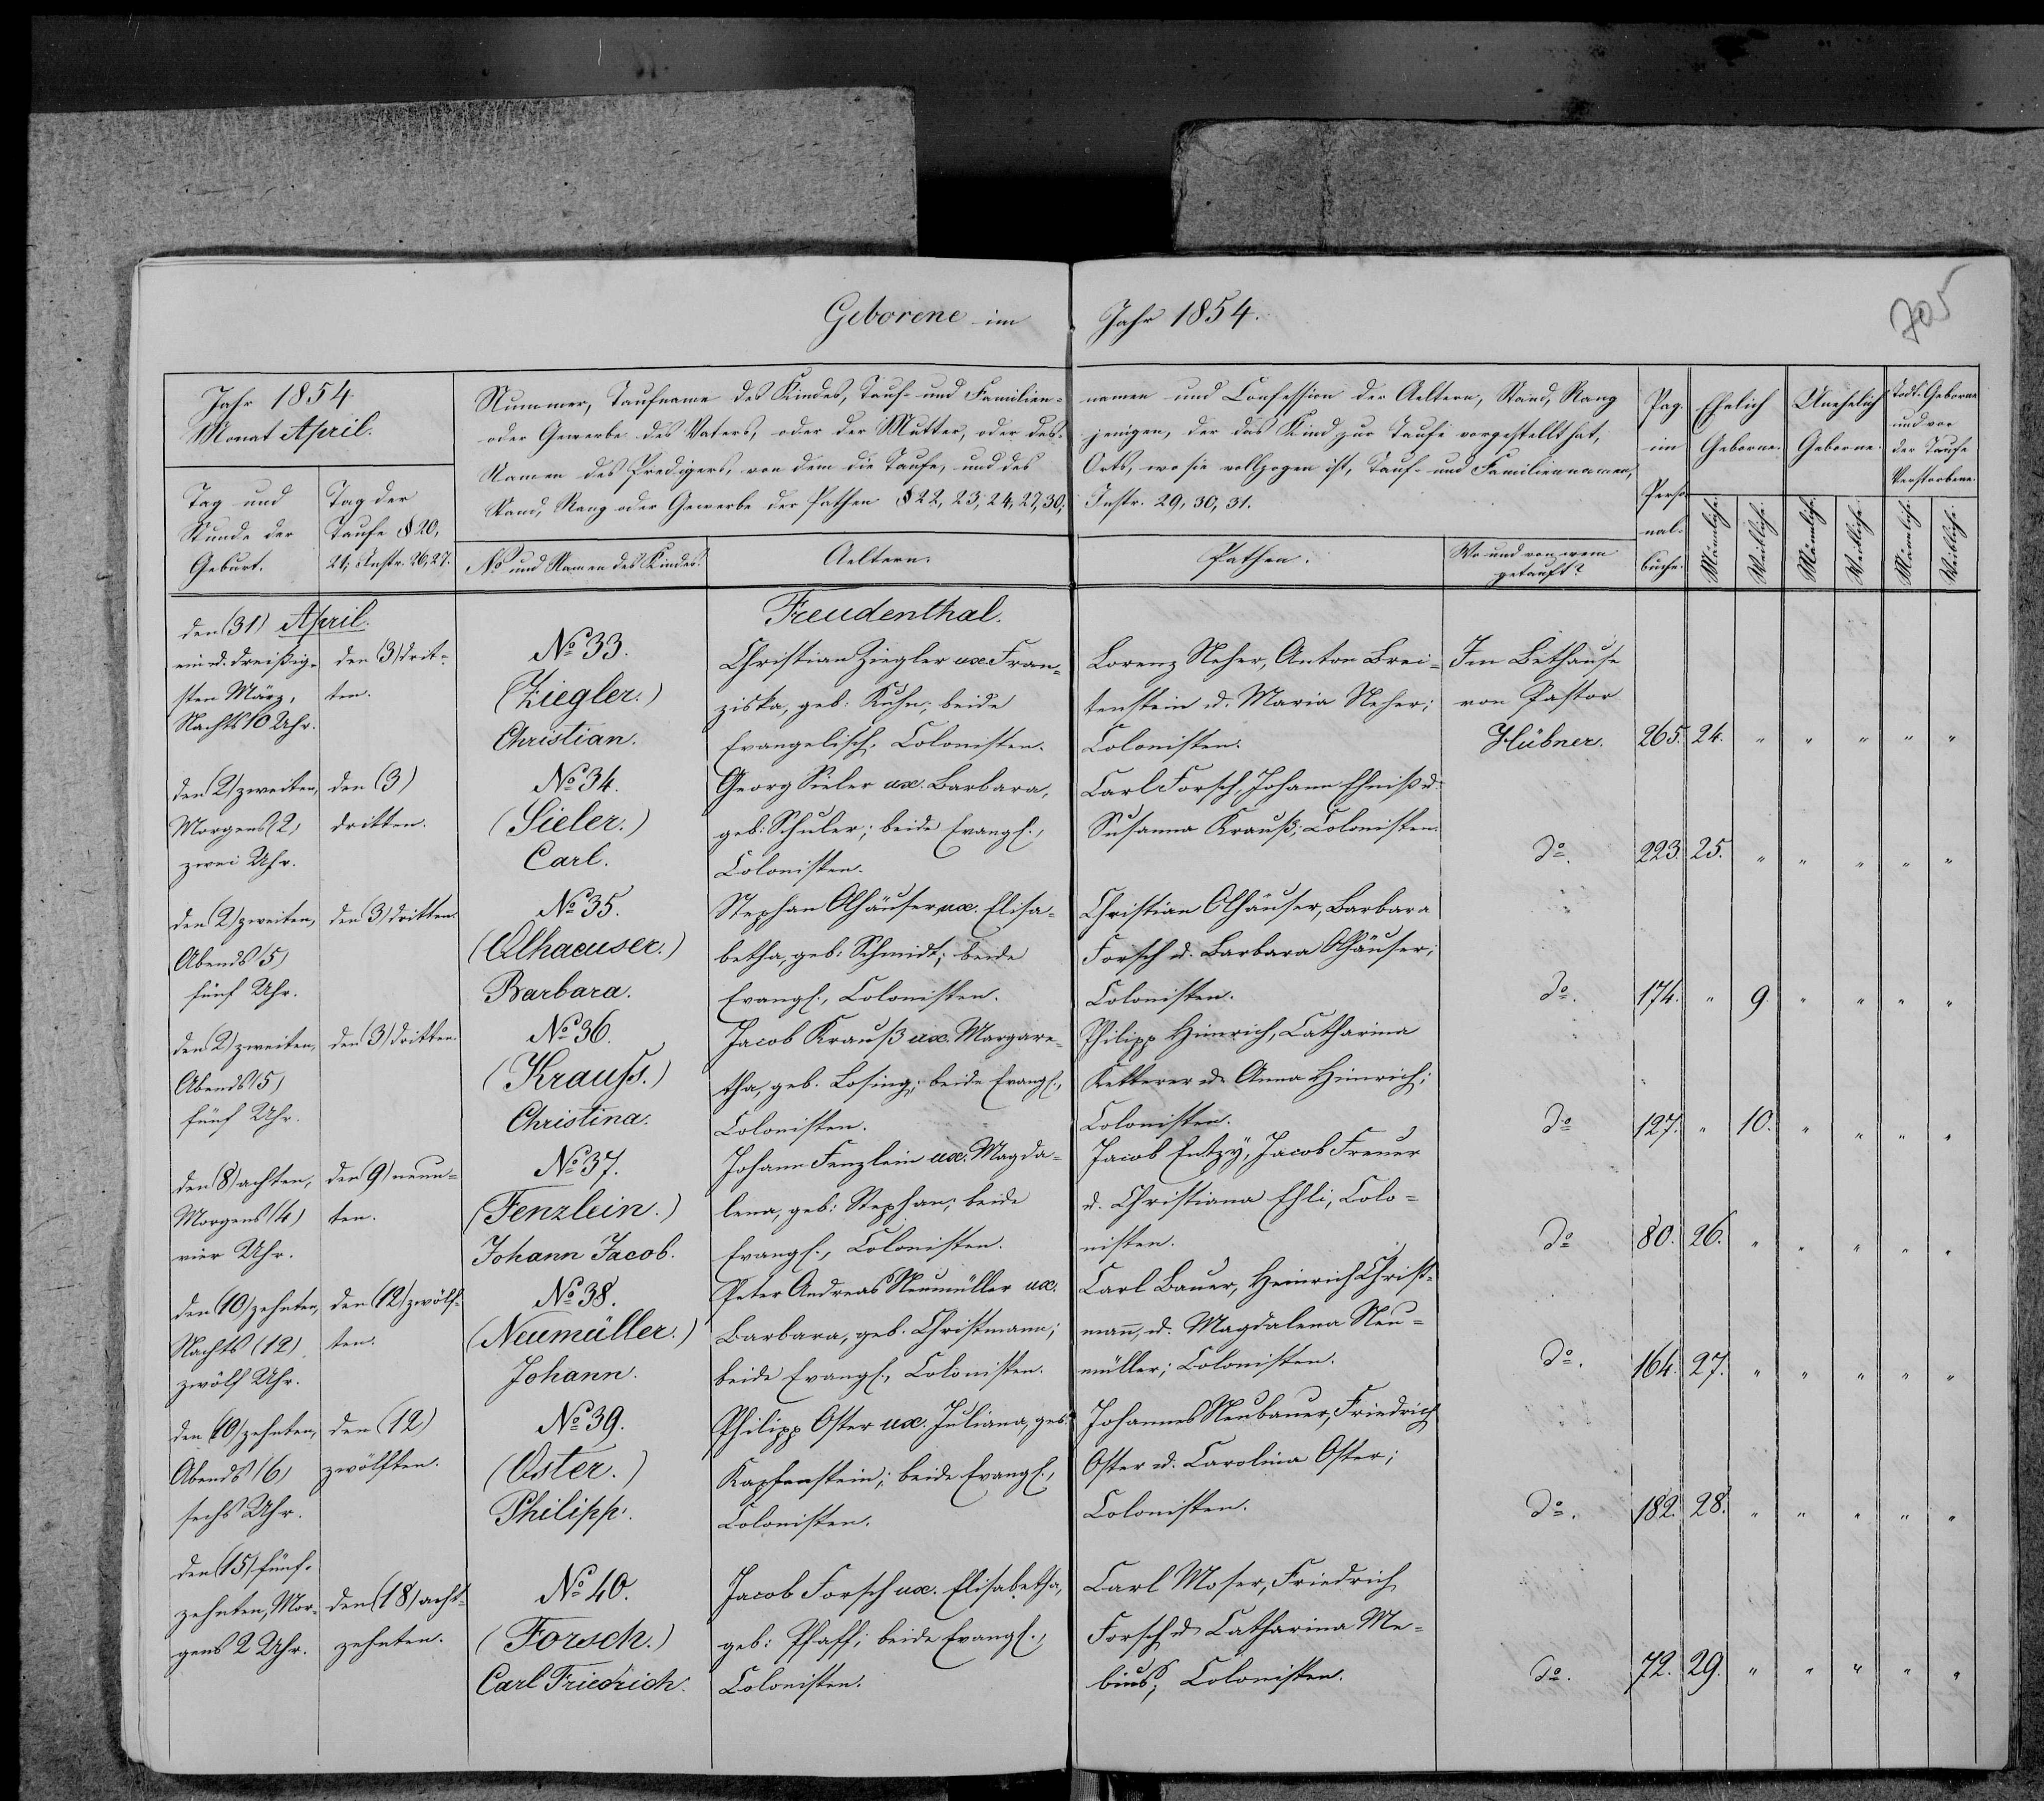 Geborene im Jahr 1854.
705
Jahr 1854
Monat April.
Tag und
Stunde der
Geburt.
Tag der
Taufe § 20,
21, Instr. 26, 27.
Nummer, Taufname des Kindes, Tauf- und Familien-
oder Gewerbe des Vaters, oder der Mutter, oder des-
Namen des Predigers, von dem die Taufe, und des
Stand, Rang oder Gewerbe der Pathen § 22, 23, 24, 27, 30,
No und Namen des Kindes.
Aeltern.
namen und Confession der Aeltern, Stand, Rang
jenigen, der das Kind zur Taufe vorgestellt hat,
Orts, wo sie vollzogen ist, Tauf- und Familiennamen,
Instr. 29, 30, 31.
Pathen.
Wo und von wem
getauft?
Pag.
im
Perso-
nal-
buche.
Ehelich
Geborne.
Unehelich
Geborne.
Todt-Geborne
und vor
der Taufe
Verstorbene.
Männlich.
Weiblich.
Männlich.
Weiblich.
Männlich.
Weiblich.
Freudenthal.
den (31) April.
ein u. dreißig-
sten März,
Nachts 10 Uhr.
den (3) drit-
ten.
No 33.
(Ziegler.)
Christian.
Christian Ziegler ux. Fran-
ziska, geb: Kuhn; beide
Evangelisch, Colonisten.
Lorenz Neher, Anton Brei-
tenstein u. Maria Neher;
Colonisten.
Im Bethause
von Pastor
Hübner.
265. 24. " " " " "
den (2) zweiten,
Morgens (2)
zwei Uhr.
den (3)
dritten.
No 34.
(Sieler.)
Carl.
Georg Sieler ux. Barbara,
geb: Schuler; beide Evangl.,
Colonisten.
Carl Forsch, Johann Ehniß u.
Susanna Krauß; Colonisten.
do. 223. 25. " " " " "
den (2) zweiten,
Abends (5)
fünf Uhr.
den (3) dritten.
No 35.
(Olhaeuser.)
Barbara.
Stephan Olhäuser ux. Elisa-
betha, geb: Schmidt; beide
Evangl., Colonisten.
Christian Olhäuser, Barbara
Forsch u. Barbara Olhäuser;
Colonisten.
do. 174. " 9. " " " "
den (2) zweiten,
Abends (5)
fünf Uhr.
den (3) dritten.
No 36.
(Krauß.)
Christina.
Jacob Krauß ux. Margare-
tha, geb. Losing; beide Evangl.,
Colonisten.
Philipp Himrich, Catharina
Ketterer u. Anna Himrich;
Colonisten.
do 127. " 10. " " " "
den (8) achten,
Morgens (4)
vier Uhr.
den (9) neun-
ten.
No 37.
(Fenzlein.)
Johann Jacob.
Johann Fenzlein ux. Magda-
lena, geb: Stephan; beide
Evangl., Colonisten.
Jacob Entzy, Jacob Freuer
u. Christiana Ehli, Colo-
nisten.
do 80. 26. " " " " "
den (10) zehnten,
Nachts (12)
zwölf Uhr.
den (12) zwölf-
ten.
No 38.
(Neumüller.)
Johann.
Peter Andreas Neumüller ux.
Barbara, geb. Christmann;
beide Evangl., Colonisten.
Carl Bauer, Heinrich Christ-
mann, u. Magdalena Neu-
müller; Colonisten.
do. 164. 27. " " " " "
den (10) zehnten,
Abends (6)
sechs Uhr.
den (12)
zwölften.
No 39.
(Oster.)
Philipp.
Philipp Oster ux. Juliana, geb:
Kapfenstein; beide Evangl.,
Colonisten.
Johannes Neubauer, Friedrich
Oster u. Carolina Oster;
Colonisten.
do. 182. 28. " " " " "
den (15) fünf-
zehnten, Mor-
gens 2 Uhr.
den (18) acht-
zehnten.
No 40.
(Forsch.)
Carl Friedrich.
Jacob Forsch ux. Elisabetha,
geb: Pfaff; beide Evangl.,
Colonisten.
Carl Moser, Friedrich
Forsch u. Catharina Me-
bius; Colonisten.
do. 72. 29. " " " " "